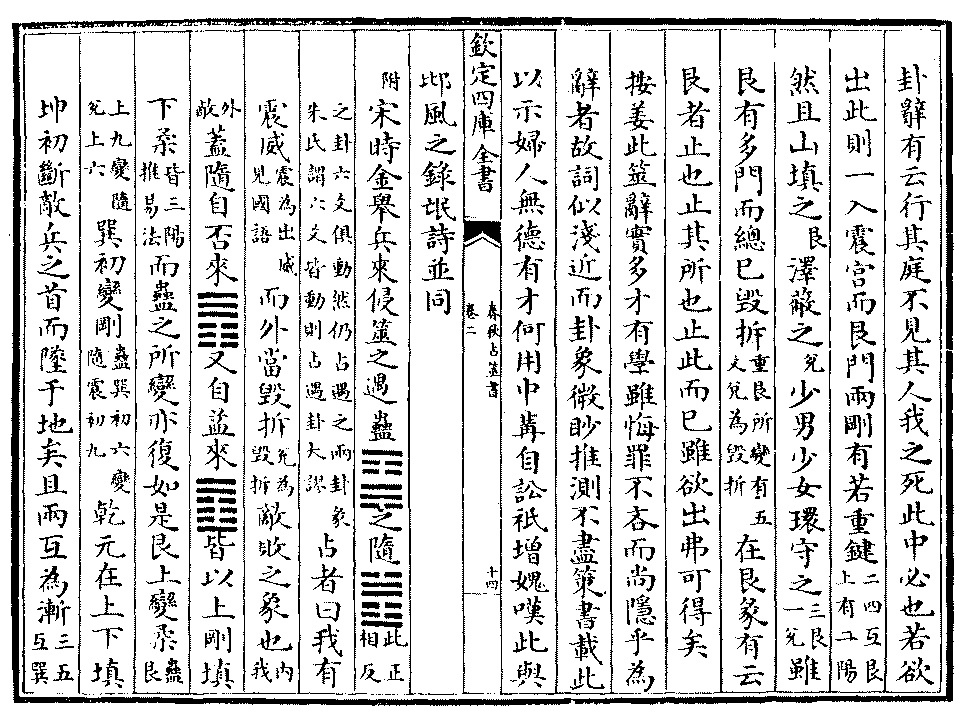 卦辭有云行其庭不見其人我之死此中必也若欲
出此則一入震宫而艮門兩剛有若重鍵二四互艮上有二陽
然且山填之艮澤蔽之兊少男少女環守之三艮一兊雖
艮有多門而總已毀折重艮所變有五文兊為毀折在艮象有云
艮者止也止其所也止此而已雖欲出弗可得矣
按姜此筮辭實多才有學雖悔罪不吝而尚隱乎為
辭者故詞似淺近而卦象微眇推測不盡䇿書載此
以示婦人無德有才何用中冓自訟祗增媿嘆此與
欽定四庫全書
春秋占筮書
卷二
十四
邶風之錄氓詩並同
附宋時金舉兵來侵筮之遇蠱䷑之隨䷐此正相反
之卦六文俱動然仍占遇之兩卦象朱氏謂六文皆動則占遇卦大謬占者曰我有
震威震為出威見國語而外當毀折兊為毀折敵敗之象也内我
外敵蓋隨自否來䷋又自益來䷩皆以上剛填
下柔皆三陽推易法而蠱之所變亦復如是艮上變柔蠱艮
上九變隨兊上六巽初變剛蠱巽初六變隨震初九乾元在上下填
坤初斷敵兵之首而墜于地矣且兩互為漸三五互巽